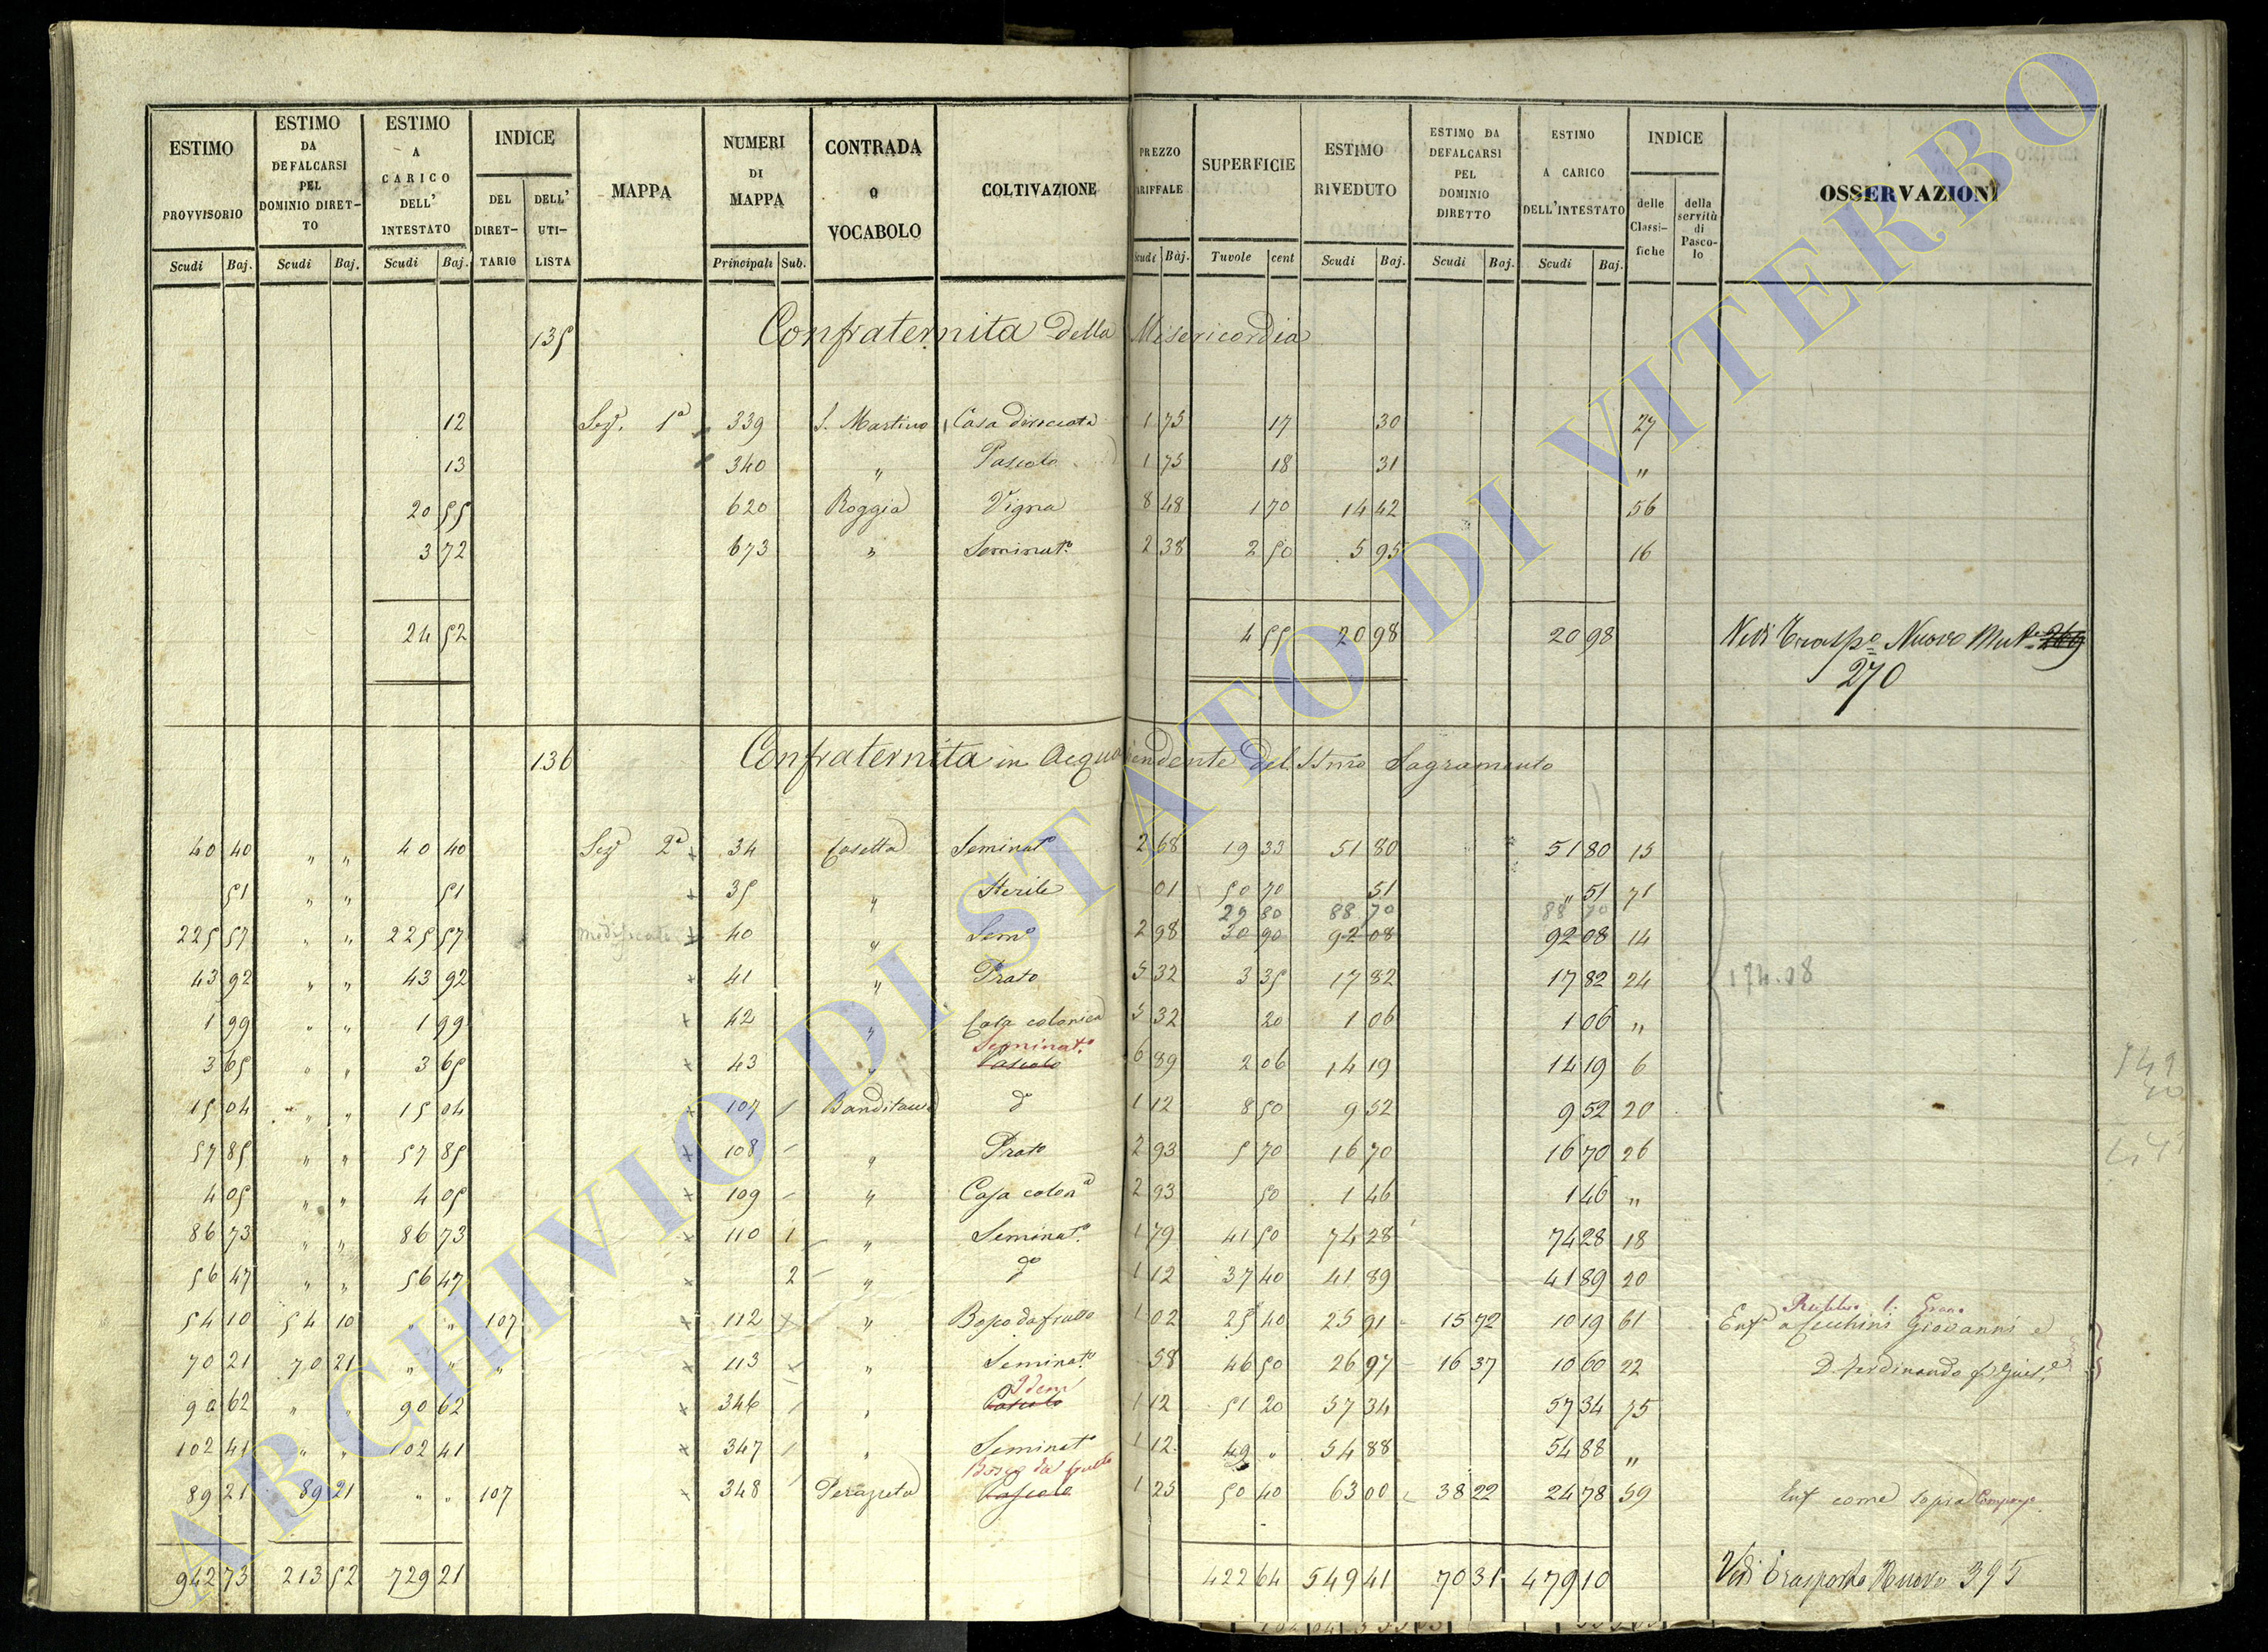 ESTIMO PROVVISORIO
ESTIMO DA DEFALCARSI PEL DOMINIO DIRET-TO
ESTIMO A CARICO DELL' INTESTATO
INDICE
DEL DIRET-TARIO
DELL' UTI-LISTA
MAPPA
NUMERI DI MAPPA
CONTRADA O VOCABOLO
COLTIVAZIONE
PREZZO ARIFFALE
SUPERFICIE
ESTIMO RIVEDUTO
ESTIMO DA DEFALCARSI PEL DOMINIO DIRETTO
ESTIMO A CARICO DELL'INTESTATO
INDICE
delle Classi-fiche
della servitù di Pasco-lo
OSSERVAZIONI
Scudi Baj. Scudi Baj. Scudi Baj. Principali Sub. Scudi Baj. Tavole cent Scudi Baj. Scudi Baj. Scudi Baj.
135 Confraternita della Misericordia
12 Sez. 1a 339 S. Martino Casa diroccata 1 75 17 30 27
13 340 " Pascolo 1 75 18 31 "
20 55 620 Roggia Vigna 8 48 1 70 14 42 56
3 72 673 " Seminato 2 38 2 50 5 95 16
24 52 4 55 20 98 20 98 Vedi Traspo Nuovo 269
270
136 Confraternita in Acquapendente del SSmo Sagramento
40 40 " " 40 40 Sez 2a 34 Casetta Seminato 2 68 19 33 51 80 51 80 15
51 " " 51 35 " Sterile 01 50 70 51 " 51 71
29 80 88 70 88 70
225 57 " " 225 57 modificato 40 " Semo 2 98 30 90 92 08 92 08 14
43 92 " " 43 92 41 " Prato 5 32 3 35 17 82 17 82 24 174.08
1 99 " " 1 99 42 " Casa colonica 5 32 20 1 06 1 06 "
Seminato
3 65 " " 3 65 43 " Pascolo 6 89 2 06 14 19 14 19 6
15 04 " " 15 04 107 Banditaccia do 1 12 8 50 9 52 9 52 20
57 85 " " 57 85 108 " Prato 2 93 5 70 16 70 16 70 26
4 05 " " 4 05 109 " Casa colona 2 93 50 1 46 1 46 "
86 73 " " 86 73 110 1 " Seminato 1 79 41 50 74 28 74 28 18
56 47 " " 56 47 2 " do 1 12 37 40 41 89 41 89 20
54 10 54 10 " " 107 112 " Bosco da frutto 1 02 25 40 25 91 15 72 10 19 61 Enfa a Cecchini Giovanni e
70 21 70 21 " " " 113 " Seminato 58 46 50 26 97 16 37 10 60 22 D. Ferdinando
Idem
90 62 " " 90 62 346 " Pascolo 1 12 51 20 57 34 57 34 75
102 41 " " 102 41 347 " Seminato 1 12 49 " 54 88 54 88 "
Bosco da frutto
89 21 89 21 " " 107 348 Pascolo 1 25 50 40 63 00 38 22 24 78 59 Enf come sopra
942 73 213 52 729 21 422 64 549 41 70 31 479 10 Vedi trasporto Nuovo 395
ARCHIVIO DI STATO DI VITERBO